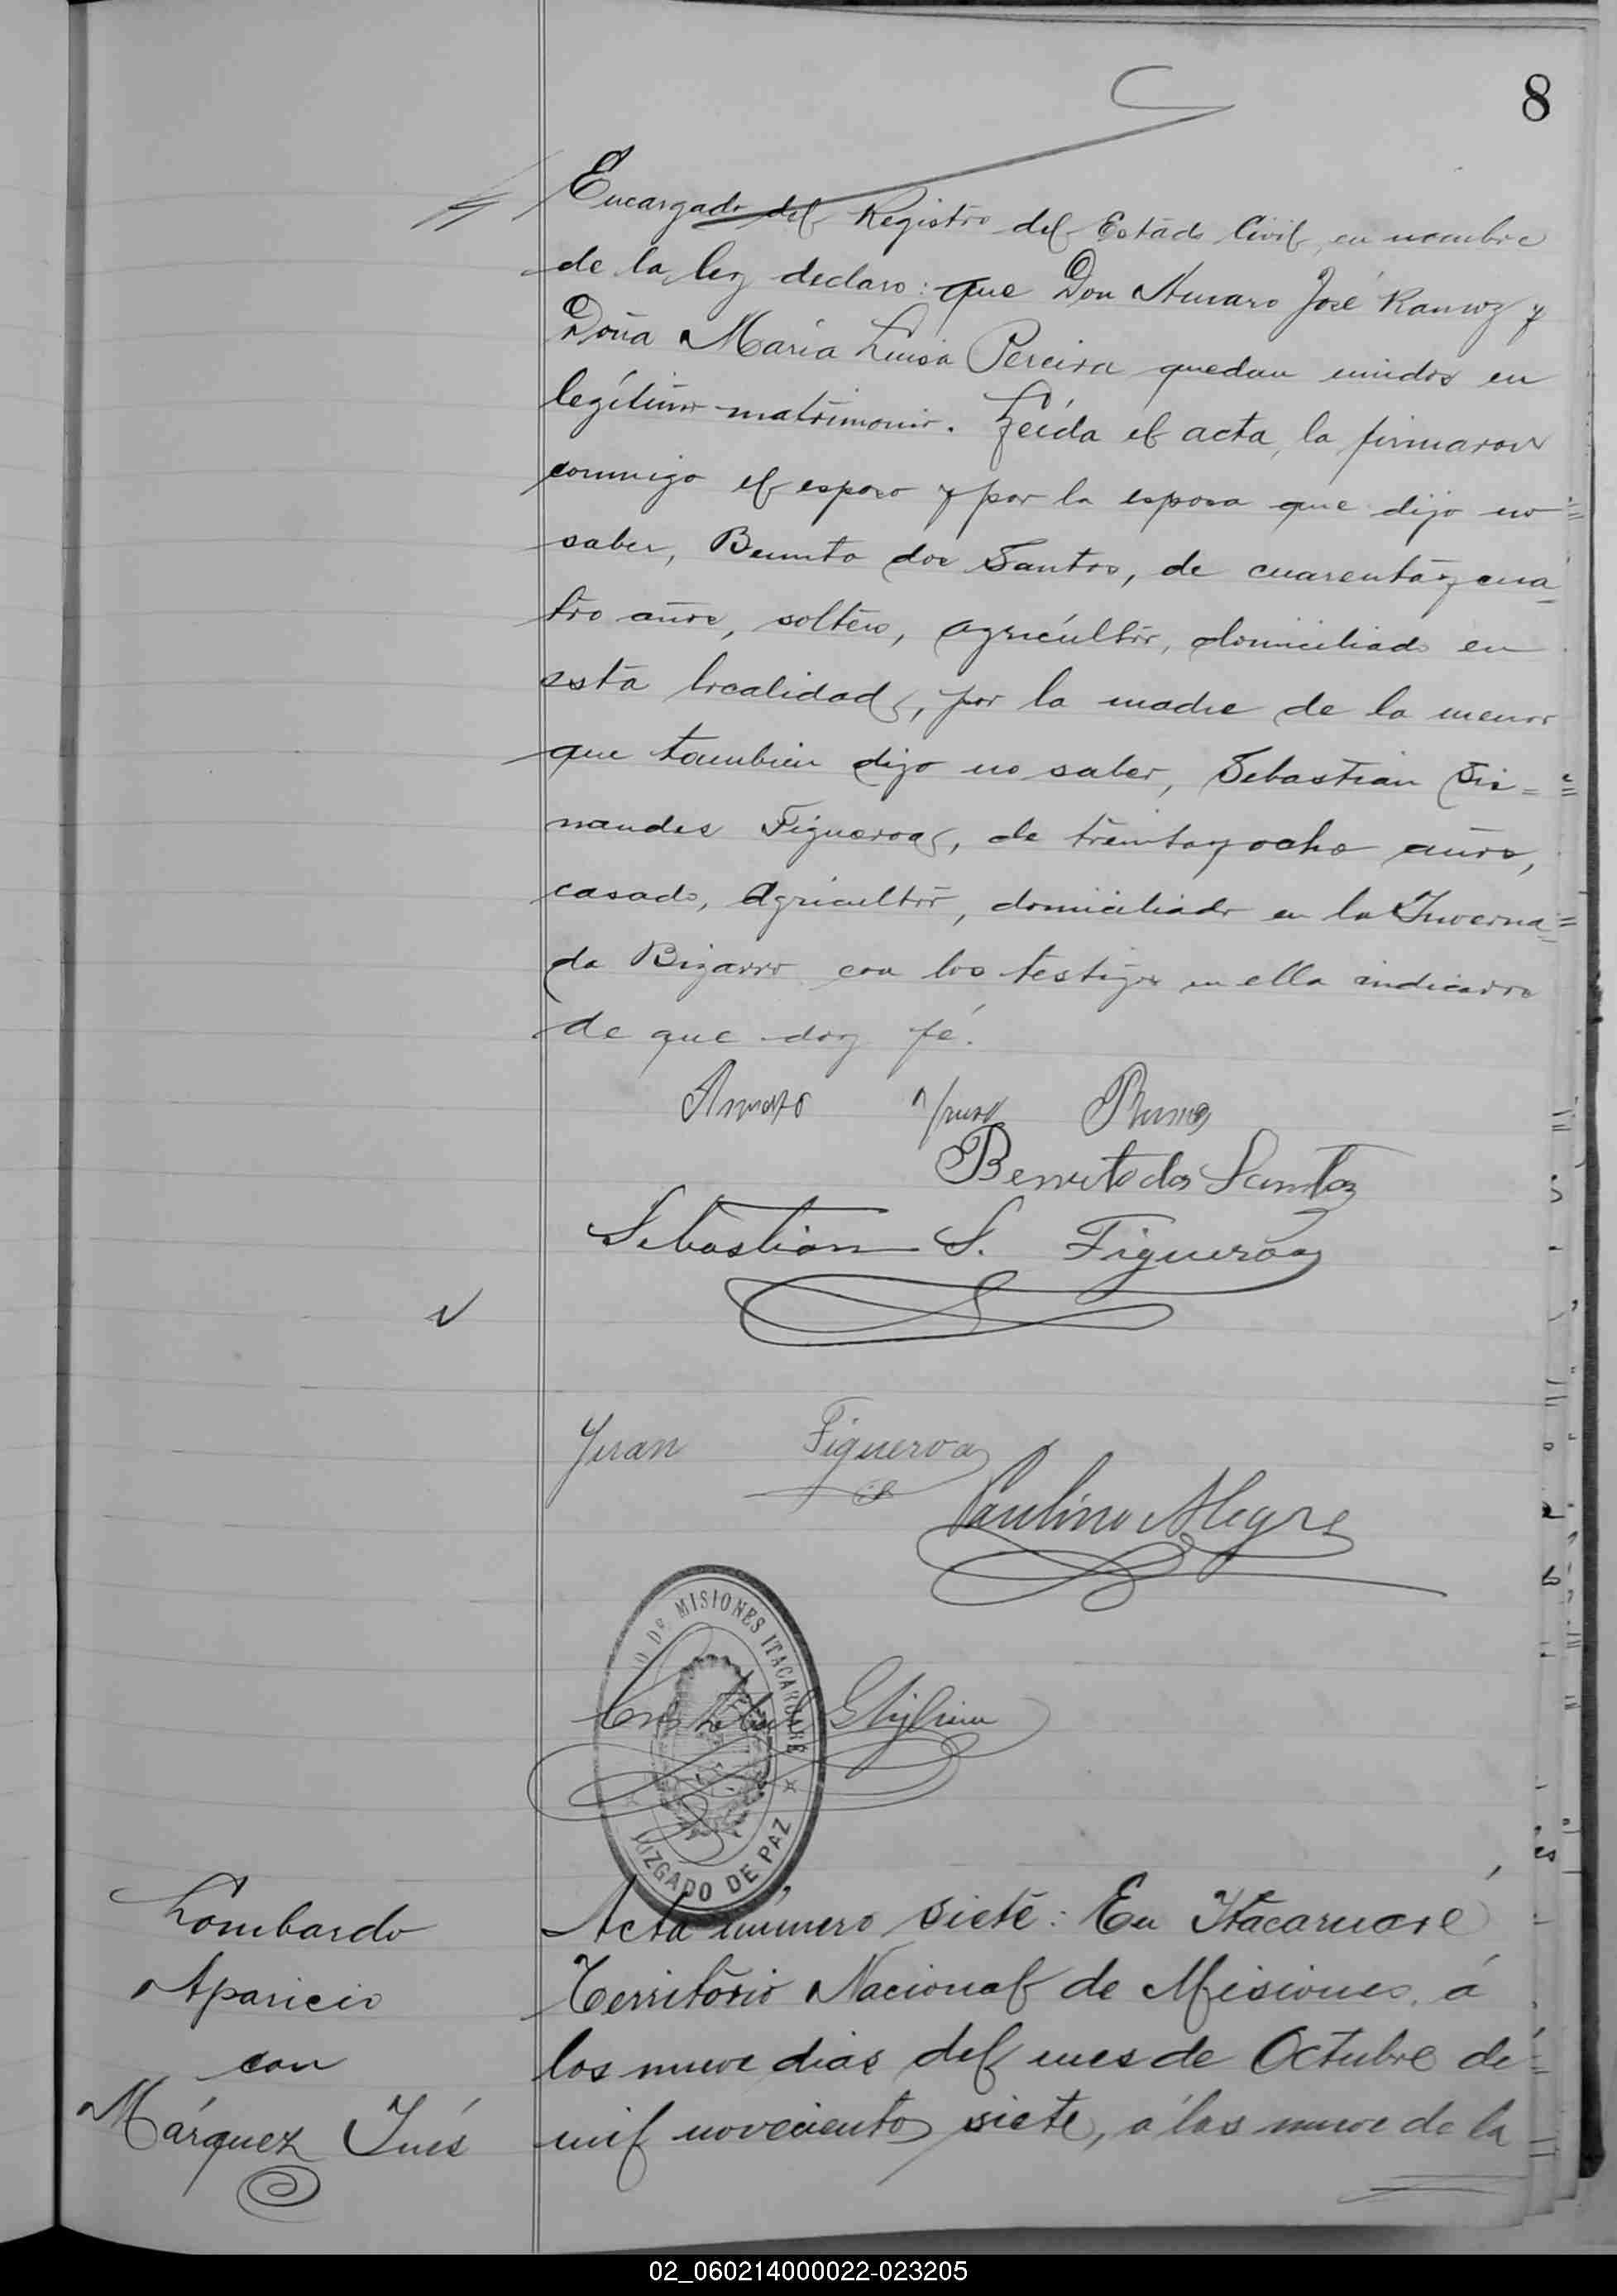 8
Encargado del Registro del Estado Civil, en nombre
de la ley declaro: que Don Amaro José Ramoz y
Doña María Luisa Pereira quedan unidos en
legítimo matrimonio. Leída el acta, la firmaron
conmigo el esposo y por la esposa que dijo no
saber, Benito dos Santos, de cuarenta y cua-
tro años, soltero, agricultor, domiciliado en
esta localidad, por la madre de la menor
que tambien dijo no saber, Sebastian Sis=
nandes Figueroa, de treinta y ocho años,
casado, agricultor, domiciliado en la Inverna-
da Bizarro con los testigos en ella indicados
de que doy fé.
Amaro
Benito dos Santos
Sebastian S. Figueroa
Juan Figueroa
Paulino Alegre
DE MISIONES ITACARUARÉ
JUZGADO DE PAZ
Lombardo
Aparicio
con
Márquez Inés
Acta número siete: En Itacaruaré
Territorio Nacional de Misiones, á
los nueve dias del mes de Octubre de
mil novecientos siete, á las nueve de la
02_060214000022-023205